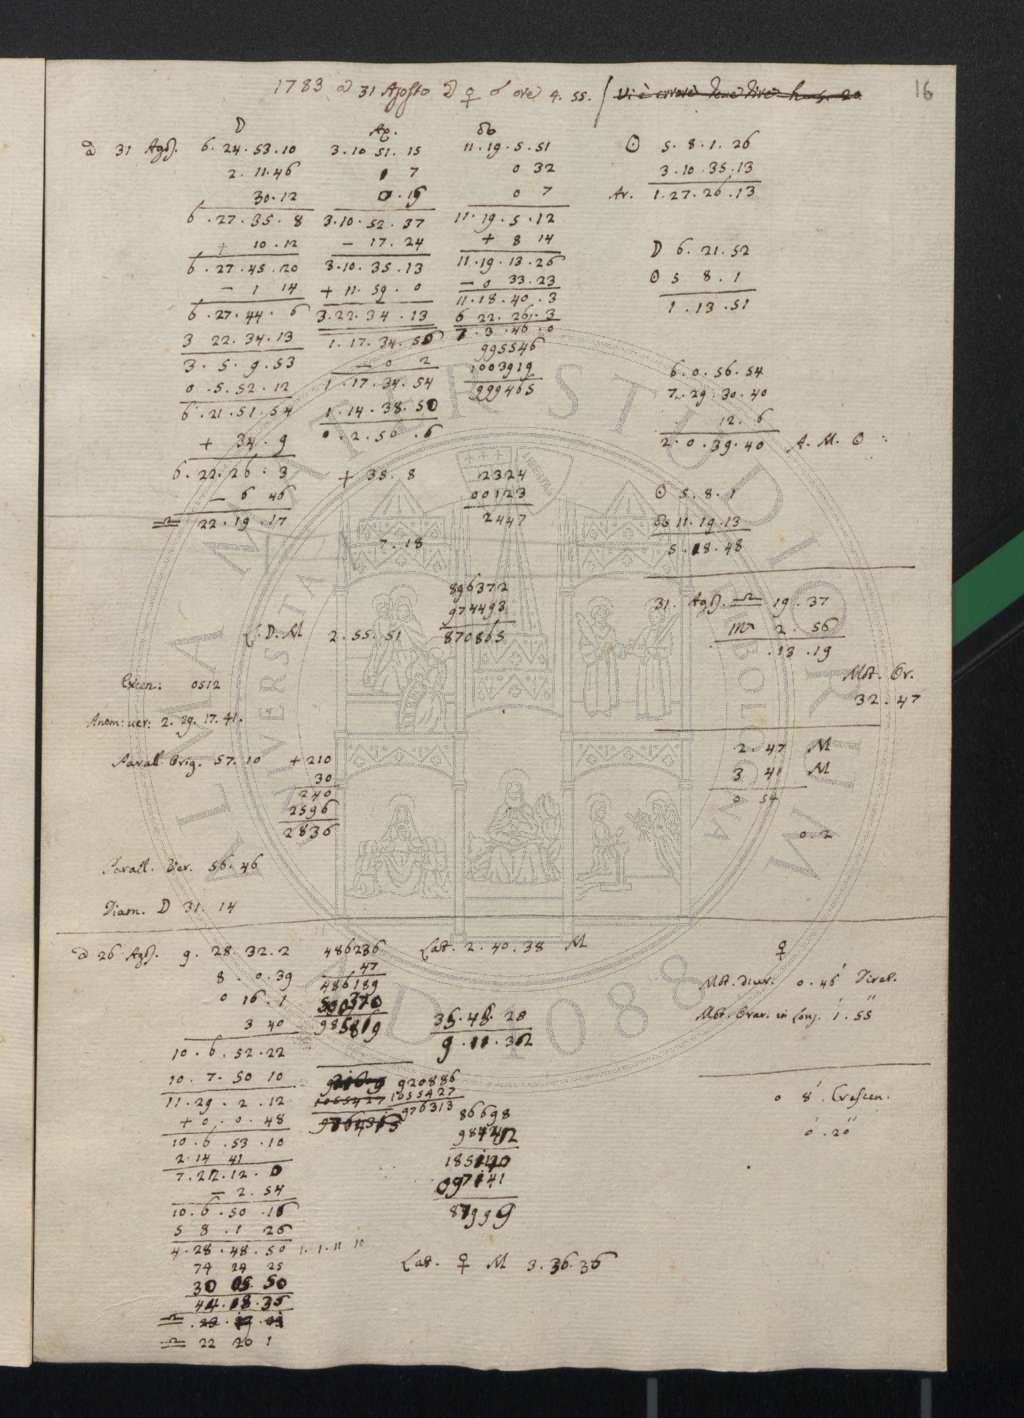 1783 a 31 Agosto ☽ ♀ ☌ ore 4. 55. / Vi è errore 16
☽ Ap. ☊
a 31 Ago. 6. 24. 53. 10 3. 10 51. 15 11. 19. 5. 51 ☉ 5. 8. 1. 26
2. 11. 46 7 0 32 3. 10. 35. 13
30. 12 0. 15 0 7 Ar. 1. 27. 26. 13
6. 27. 35. 8 3. 10. 52. 37 11. 19. 5. 12
+ 10. 12 − 17. 24 + 8 14 ☽ 6. 21. 52
6. 27. 45. 20 3. 10. 35. 13 11. 19. 13. 26 ☉ 5 8. 1
− 1 14 + 11. 59. 0 − 0 33. 23 1. 13. 51
6. 27. 44. 6 3. 22. 34. 13 11. 18. 40. 3
3 22. 34. 13 1. 17. 34. 56 6 22. 26. 3
3. 5. 9. 53 − 0 2 7. 3. 46. 0
0. 5. 52. 12 1. 17. 34. 54 995546 6. 0. 56. 54
6. 21. 51. 54 1. 14. 38. 50 1003919 7. 29. 30. 40
+ 34. 9 0. 2. 50. 6 999465 12. 6
6. 22. 26. 3 + 35. 8 2324 2. 0. 39. 40 A. M. ☉
− 6 46 00123 ☉ 5. 8. 1
♎ 22. 19. 17 2447 ☊ 11. 19. 13
7. 18 5. 18. 48
896372
974493 31. Ago. ♎ 19. 37
L. ☽. M 2. 55. 51 870865 ♏ 2. 56
13. 19
Eccen: 0512 Mot. Or.
32. 47
Anom: ver: 2. 29. 17. 41.
Parall Orig. 57. 10 + 210 2. 47 M
30 3 41 M
240 0 54
2596
2836 0. 2
Parall. Ver. 56. 46
Diam. ☽ 31. 14
a 26 Ago. 9. 28. 32. 2 486236 Lat. 2. 40. 38 M ♀
8. 0. 39 47
0 16. 1 486189 Mot. diur. 0. 46' Diret.
3 40 500370 Mot. Orar. in Lonj. 1'. 55''
10. 6. 52. 22 985819 35. 48. 20
9. 11. 362
10. 7. 50 10 920886
11. 29. 2. 12 1055427 0 8'. Crescen.
+ 0. 0. 48 976313 0'. 20''
10. 6. 53. 10 86698
2. 14 41 98442
7. 22. 12. 0 185140
− 2. 54 097141
10. 6. 50. 16 87999
5 8. 1 26
4. 28. 48. 50 1. 1. 11 10
74 24 25 Lat. ♀ M 3. 36. 36
30 05. 50
44. 18. 35
♎ 22 20 1
ALMA MATER STUDIORUM
UNIVERSITA
BOLOGNA
A.D. 1088